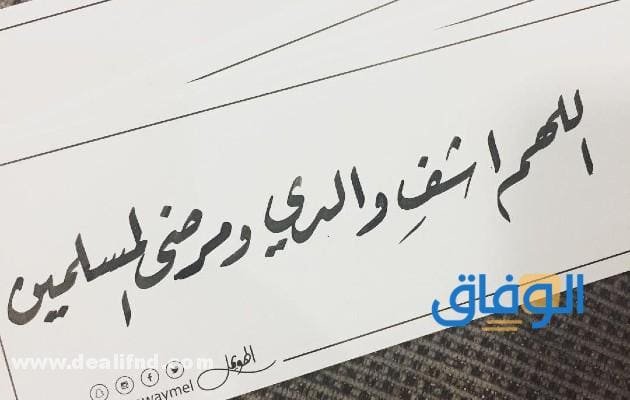 اللهم اشفِ والدي ومرضى المسلمين
الوفاق
www.dealifnd.com
الهويمل
waymel